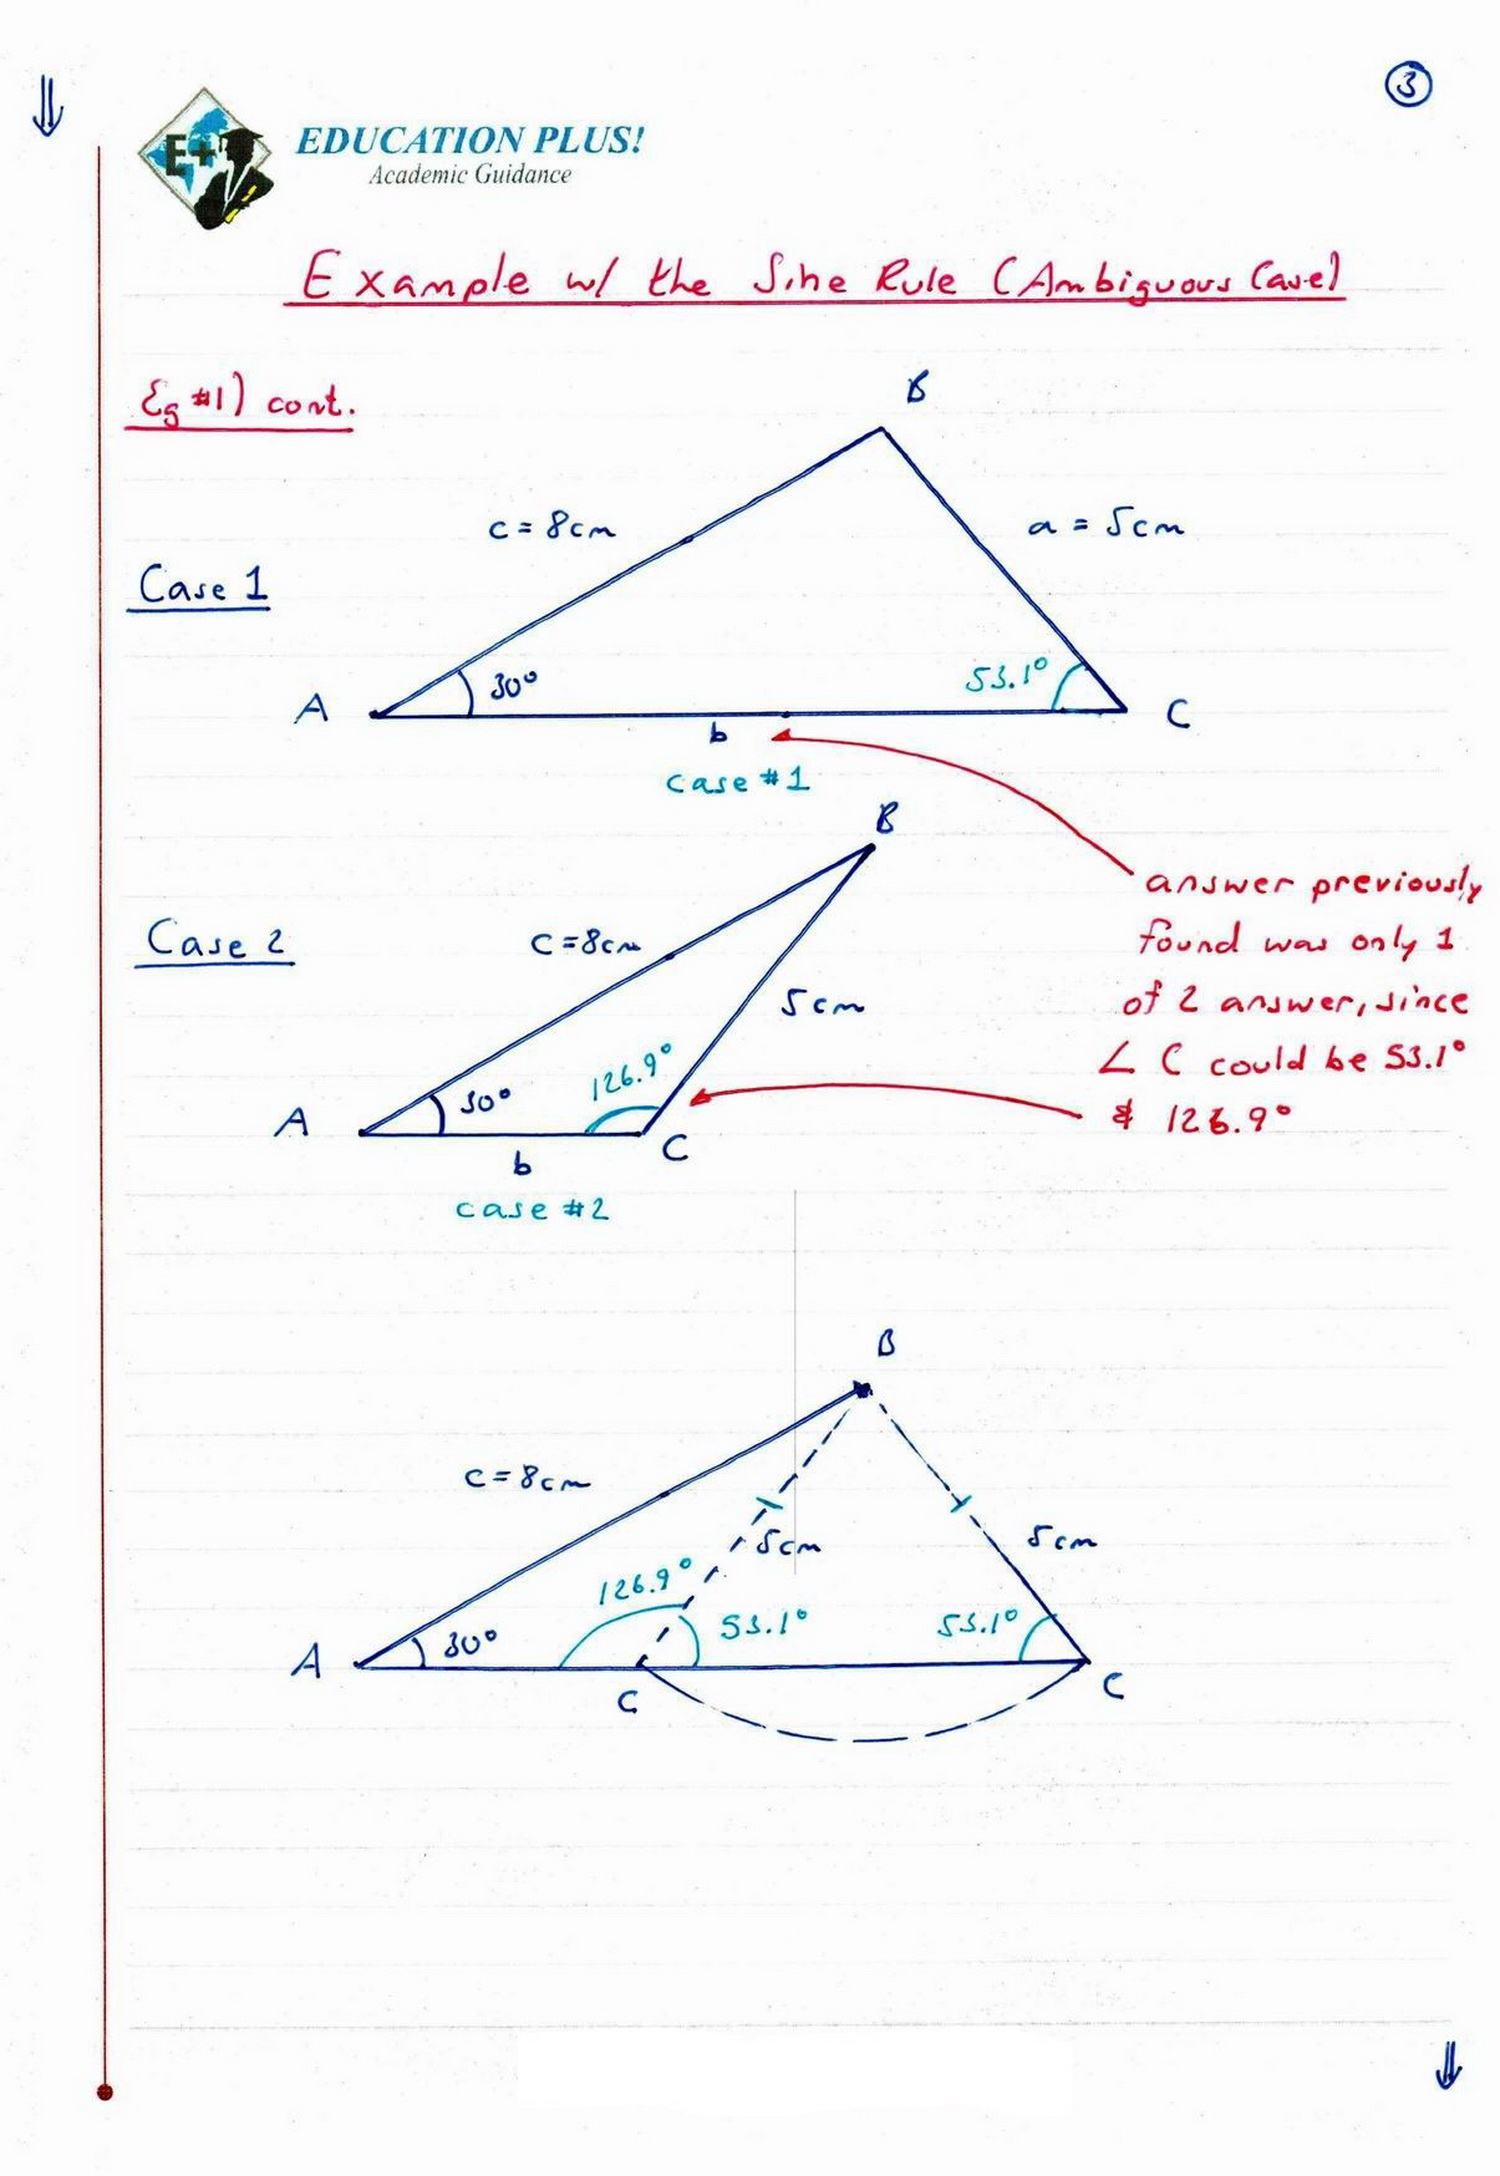 3
E+
EDUCATION PLUS!
Academic Guidance
Example w/ the Sine Rule (Ambiguous Case)
Eg #1) cont.
B
c = 8cm
a = 5cm
Case 1
30°
53.1°
A
C
b
case #1
B
answer previously
found was only 1
of 2 answer, since
∠ C could be 53.1°
& 126.9°
Case 2
c = 8cm
5cm
126.9°
30°
A
C
b
case #2
B
c = 8cm
5cm
5cm
126.9°
53.1°
53.1°
30°
A
C
C